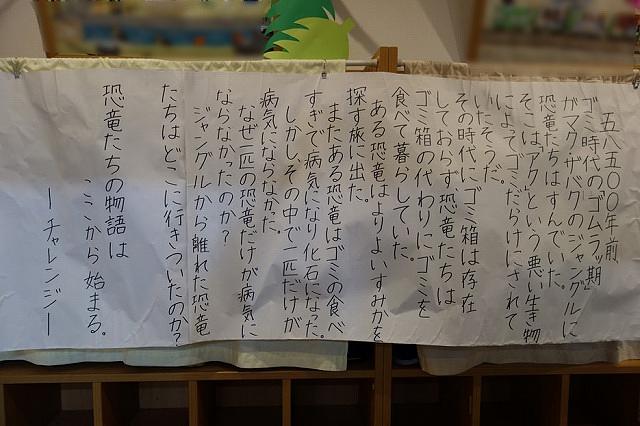 五八五〇〇年前
ゴミ時代の「ゴムラッ期」
ガマクザバクのジャングルに
恐竜たちはすんでいた。
そこは「アク」という悪い生き物
によってゴミだらけにされて
いたそうだ。
その時代にゴミ箱は存在
しておらず、恐竜たちは
ゴミ箱の代わりにゴミを
食べて暮らしていた。
ある恐竜はよりよいすみかを
探す旅に出た。
またある恐竜はゴミの食べ
すぎで病気になり化石になった。
しかし、その中で一匹だけが
病気にならなかった。
なぜ一匹の恐竜だけが病気に
ならなかったのか?
ジャングルから離れた恐竜
たちはどこに行きついたのか?
恐竜たちの物語は
ここから始まる。
ーチャレンジー